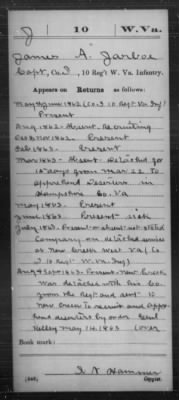 J 10 W.Va.
James A. Jarboe
Capt., Co. I, 10 Reg't W. Va. Infantry.
Appears on Returns as follows:
May & June 1862 (Co. I 10 Regt Va Inf)
Present
Aug. 1862 - Absent. Recruiting
Oct & Nov 1862. Present
Feb 1863. Present
Mar 1863 - Absent - Detached for
10 days from Mar 22 to
apprehend Deserters in
Hampshire Co. Va
May 1863. Present
June 1863. Present - sick
July 1863. Present or absent not stated
Company on detached service
at New Creek West Va (Co
I 10 Regt W. Va Inf)
Aug & Sept 1863. Present New Creek
Was detached with his Co.
from the Regt and sent to
New Creek to recruit and appre
hend deserters by order Genl
Kelley May 14, 1863 (over
Book mark:
Hammer
Copyist.